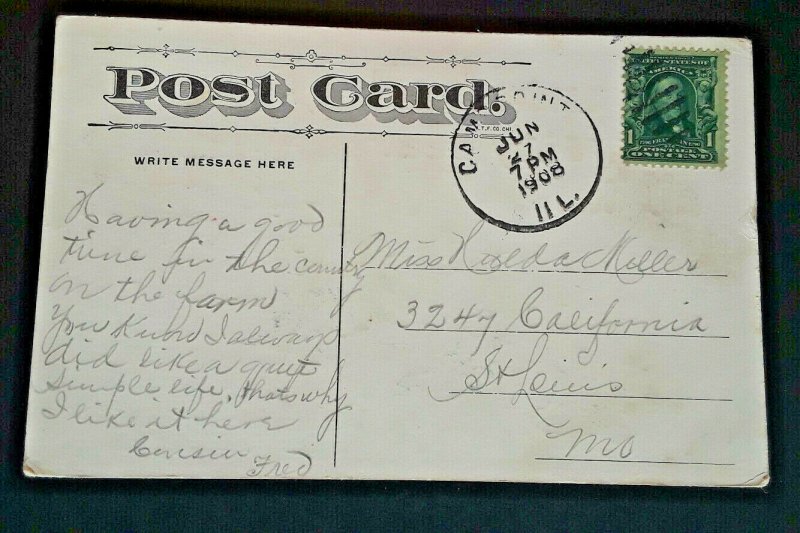 Post Card.
WRITE MESSAGE HERE
Having a good
time in the country
on the farm
You know I always
did like a quiet
simple life, thats why
I like it here
Cousin
Fred
JUN
27
7 PM
1908
ILL.
1
POSTAGE
ONE CENT
Miss Miller
3247 California
St Louis
Mo